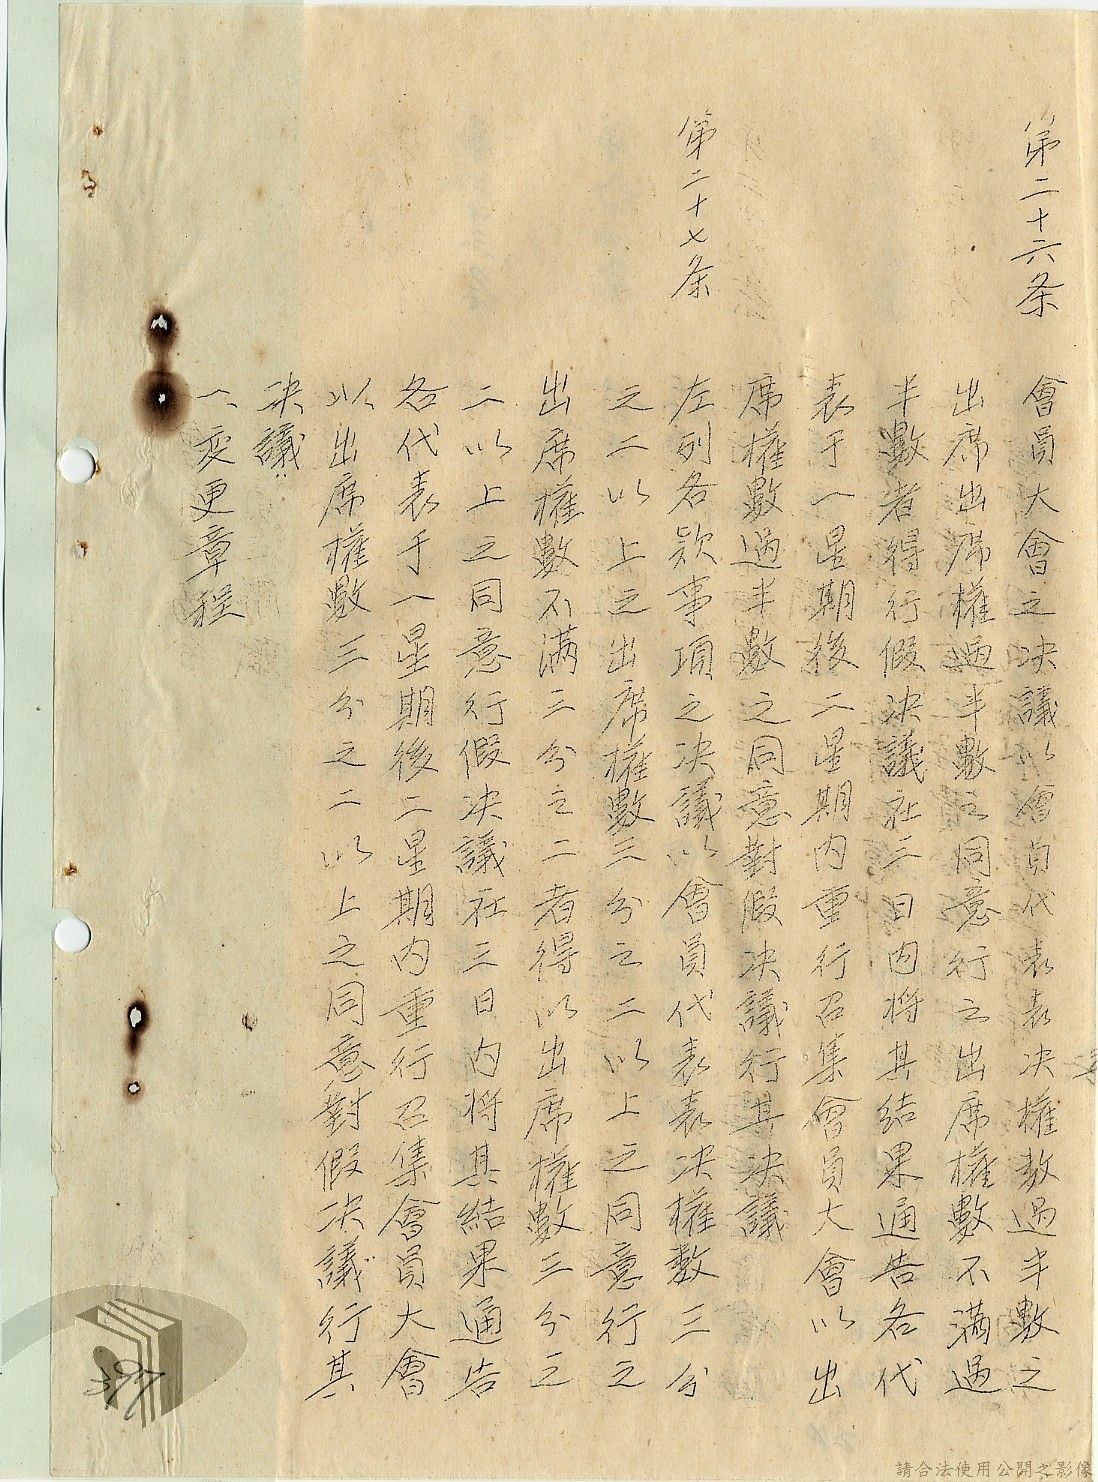 第二十六条
會員大會之决議以會員代表表决權数過半數之
出席出席權過半數之同意行之出席權數不滿過
半數者得行假决議社三日内将其結果通告各代
表于一星期後二星期内重行召集會員大會以出
席權數過半數之同意對假决議行其决議
第二十七条
左列各欵事項之决議以會員代表表决權数三分
之二以上之出席權數三分之二以上之同意行之
出席權數不满三分之二者得以出席權數三分之
二以上之同意行假决議社三日内将其結果通告
各代表于一星期後二星期内重行召集會員大會
以出席權數三分之二以上之同意對假决議行其
决議
一、变更章程
請合法使用公開之影像